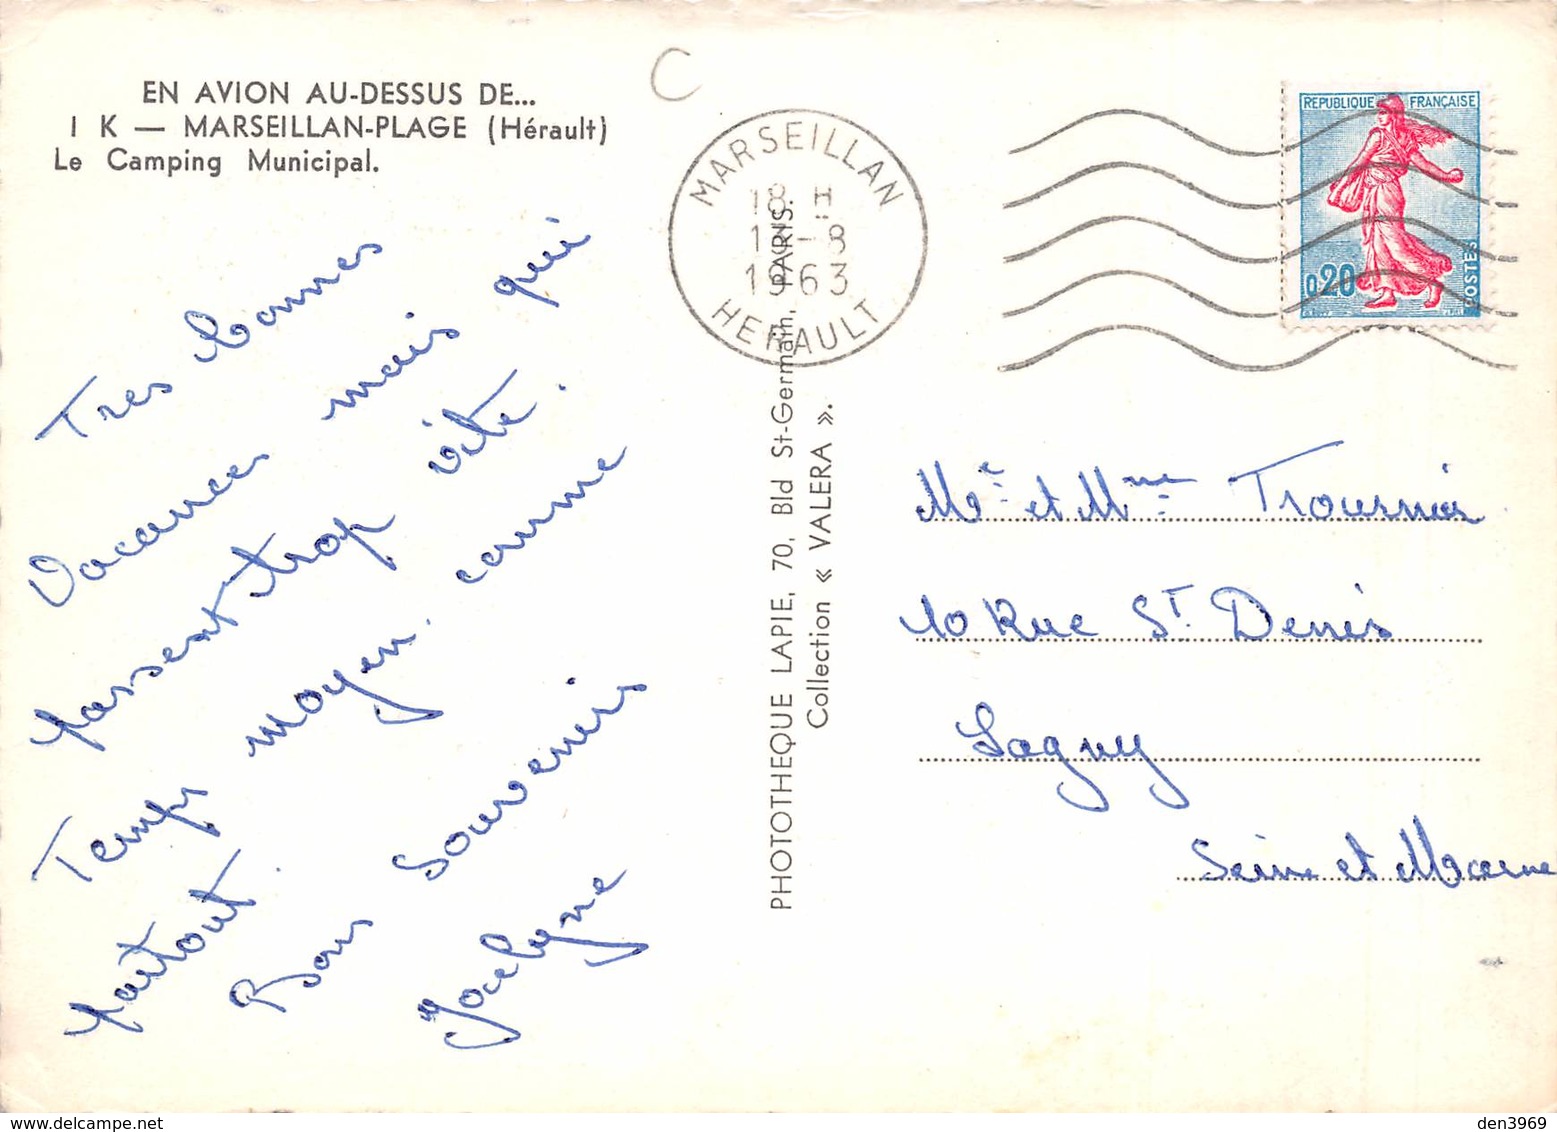 EN AVION AU-DESSUS DE...
I K — MARSEILLAN-PLAGE (Hérault)
Le Camping Municipal.
C
MARSEILLAN
18 H
13-8
1963
HERAULT
REPUBLIQUE FRANÇAISE
0,20
POSTES
Tres bonnes
Vacances mais qui
passent trop vite.
Temps moyen. comme
partout.
Bons Souvenirs
Jocelyne
PHOTOTHEQUE LAPIE, 70, Bld St-Germain, PARIS.
Collection « VALERA ».
Mr et Mme Trournier
10 Rue St Denis
Lagny
Seine et Marne
den3969